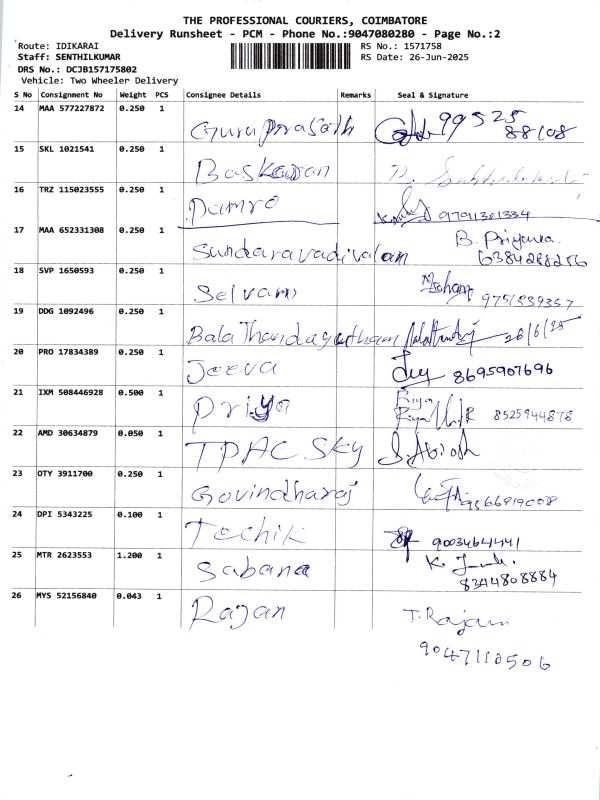 THE PROFESSIONAL COURIERS, COIMBATORE
Delivery Runsheet - PCM - Phone No.:9047080280 - Page No.:2
Route: IDIKARAI RS No.: 1571758
Staff: SENTHILKUMAR RS Date: 26-Jun-2025
DRS No.: DCJB157175802
Vehicle: Two Wheeler Delivery
S No Consignment No Weight PCS Consignee Details Remarks Seal & Signature
14 MAA 577227872 0.250 1 Guru Prasath 99525
88108
15 SKL 1021541 0.250 1 Baskaran
16 TRZ 115023555 0.250 1 Damro 9791301334
17 MAA 652331308 0.250 1 Sundaravadivalam B. Priyanka.
6384288256
18 SVP 1650593 0.250 1 Selvam 9751539357
19 DDG 1092496 0.250 1 Bala Thandayutham 26/6/25
20 PRO 17834389 0.250 1 Jeeva 8695907696
21 IXM 508446928 0.500 1 Priya Riya
Riya 8525944878
22 AMD 30634879 0.050 1 TPAC Sky S.Abi
23 OTY 3911700 0.250 1 Govindharaj 9566819008
24 DPI 5343225 0.100 1 Techik 9003464441
25 MTR 2623553 1.200 1 Sabana K.
8344808884
26 MYS 52156840 0.043 1 Rajan T. Rajan
9047110506